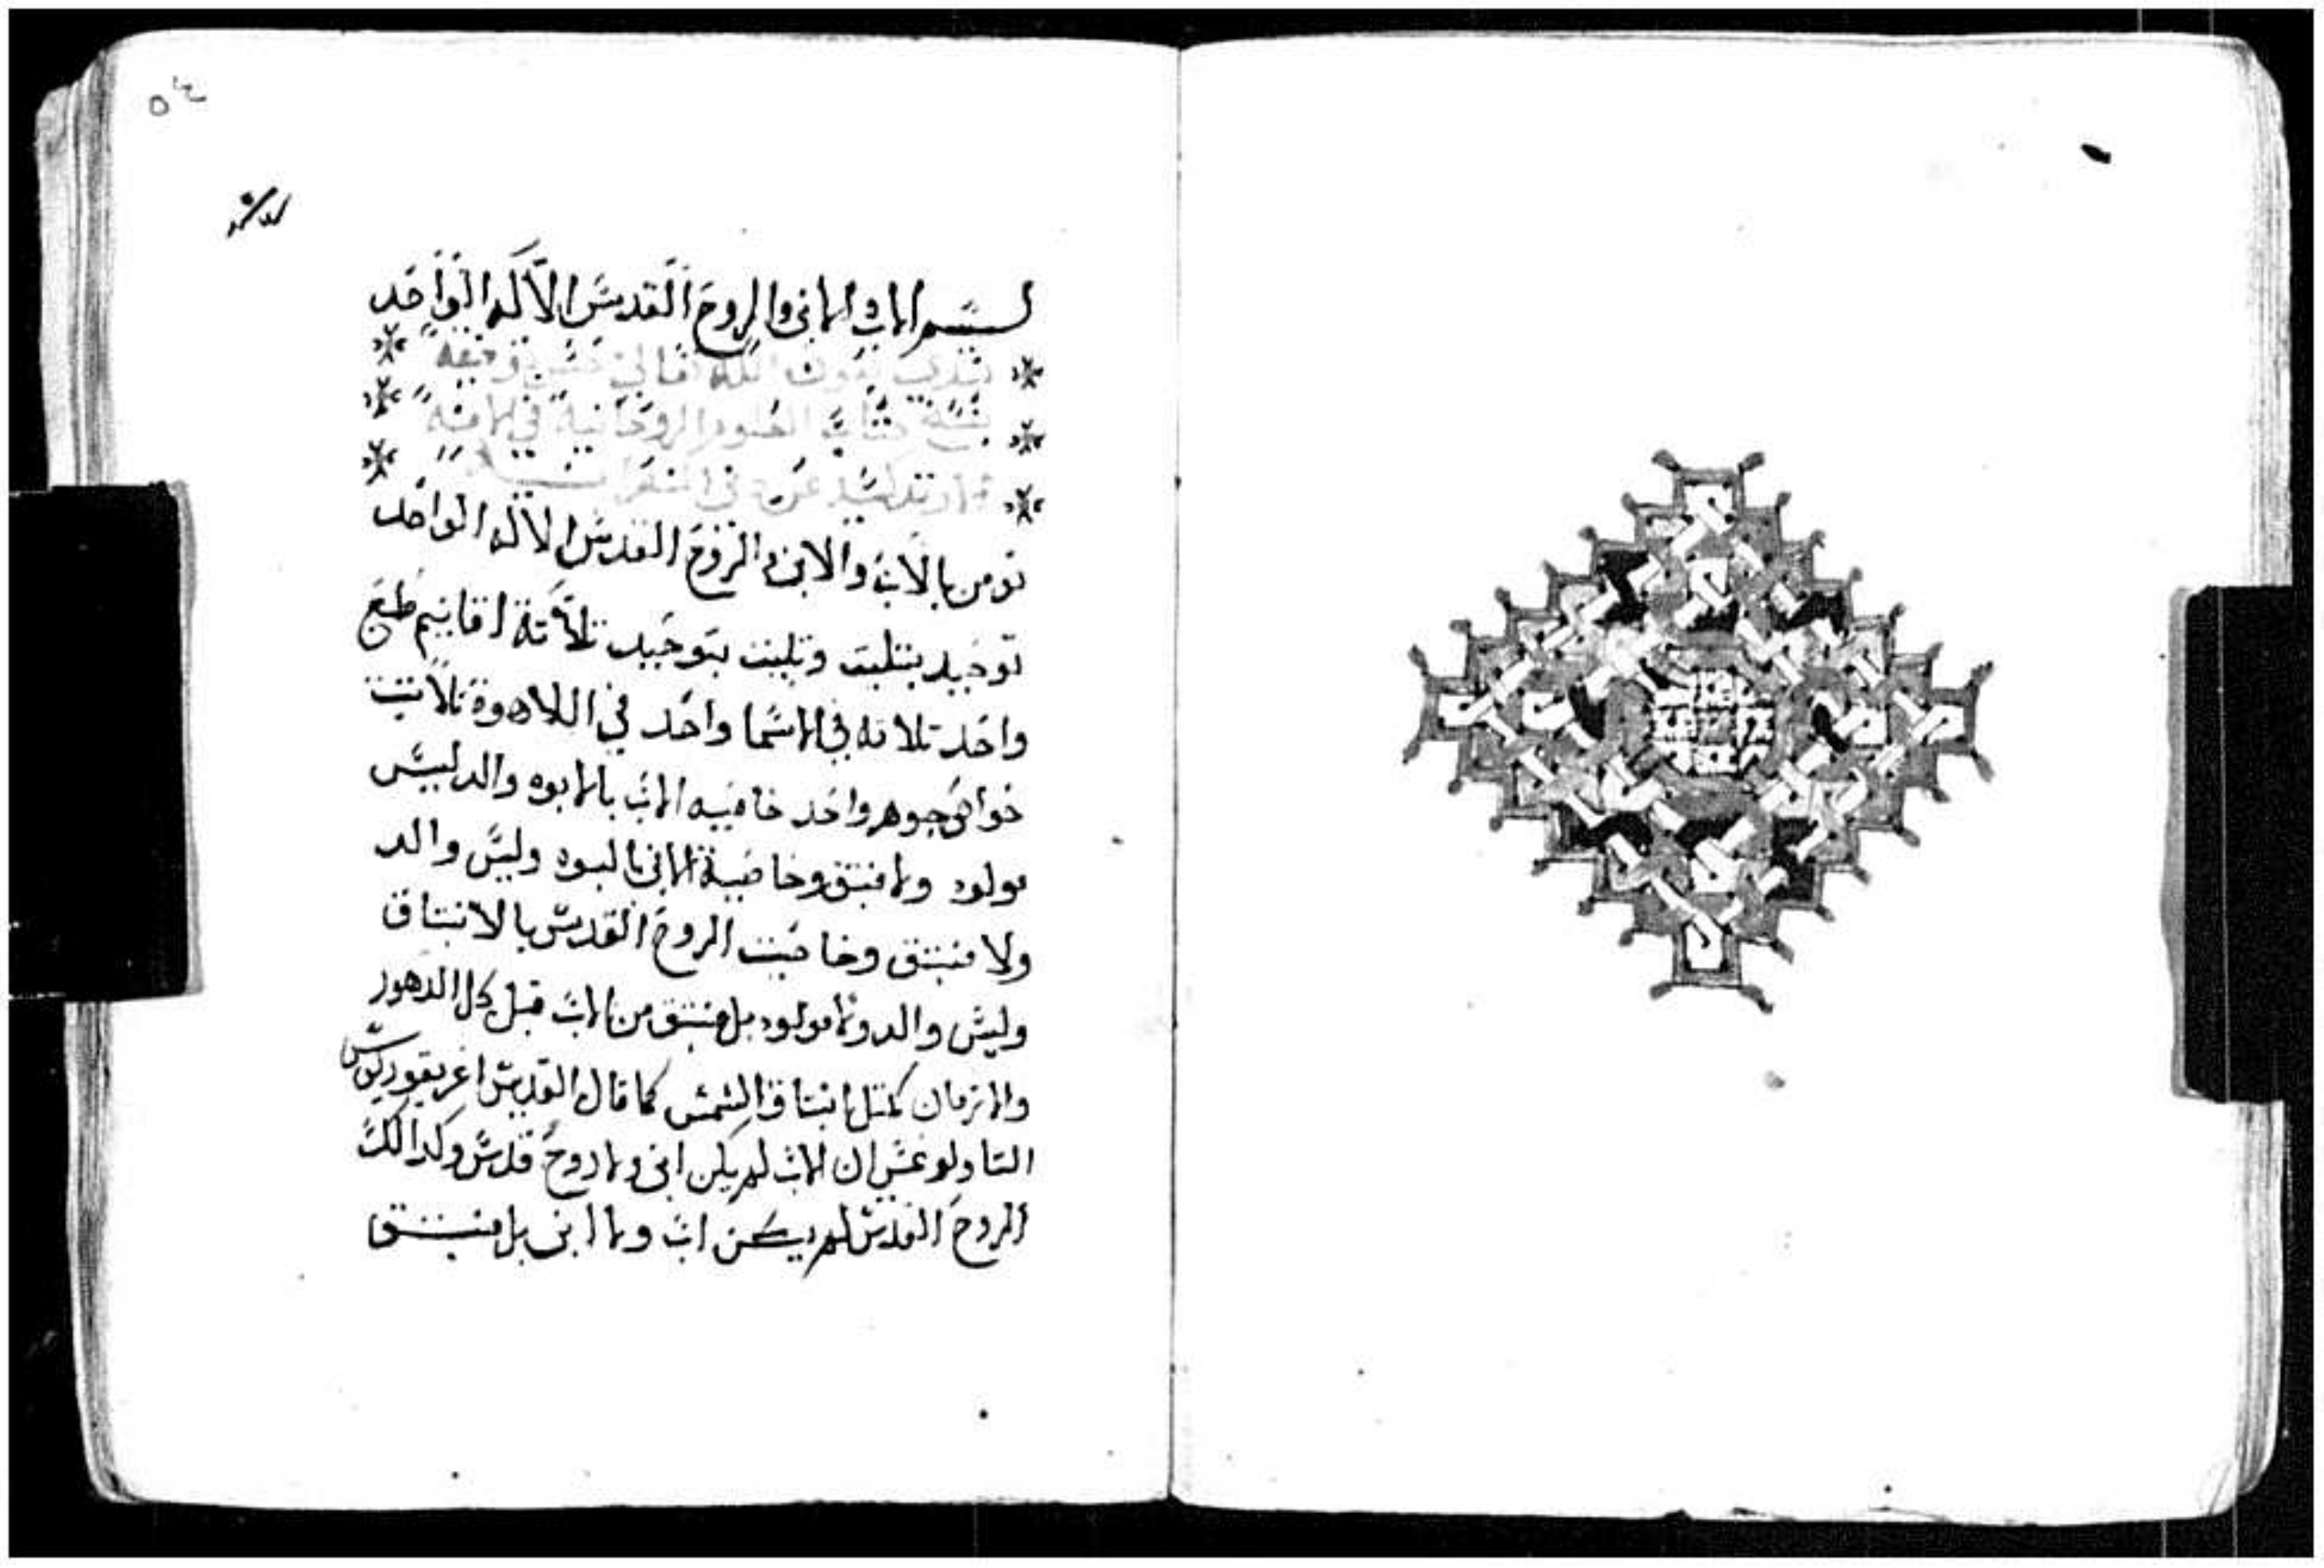 ٥٤
بسم الاب والابن والروح القدس الالاه الواحد
نبتدي بعون الله تعالي وحسن توفيقه
بنسخ كتاب العلوم الروحانية في
نومن بالاب والابن والروح القدس الالاه الواحد
توحيد بتتليت وتليت بتوحيد تلاتة اقانيم طبع
واحد تلاته في الاسما واحد في اللاهوة تلاتت
خواص جوهر واحد خاصيه الاب بالابوه والد ليس
مولود ولا منبتق وخاصية الابن بالبنوه وليس والد
ولا منبتق وخاصيت الروح القدس بالانبتاق
وليس والد ولا مولود بل منبتق من الاب قبل كل الدهور
والازمان كمتل انبتاق الشمس كما قال القديس اغريغوريوس
التاولوغس ان الاب لم يكن ابن ولا روح قدس وكدالك
الروح القدس لم يكن اب ولا ابن بل منبتق